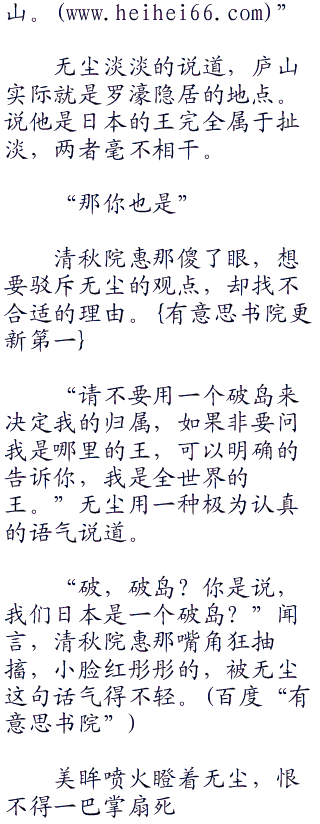 山。(www.heihei66.com)”
无尘淡淡的说道，庐山
实际就是罗濠隐居的地点。
说他是日本的王完全属于扯
淡，两者毫不相干。
“那你也是”
清秋院惠那傻了眼，想
要驳斥无尘的观点，却找不
合适的理由。{有意思书院更
新第一}
“请不要用一个破岛来
决定我的归属，如果非要问
我是哪里的王，可以明确的
告诉你，我是全世界的
王。”无尘用一种极为认真
的语气说道。
“破，破岛？你是说，
我们日本是一个破岛？”闻
言，清秋院惠那嘴角狂抽
搐，小脸红彤彤的，被无尘
这句话气得不轻。(百度“有
意思书院”)
美眸喷火瞪着无尘，恨
不得一巴掌扇死